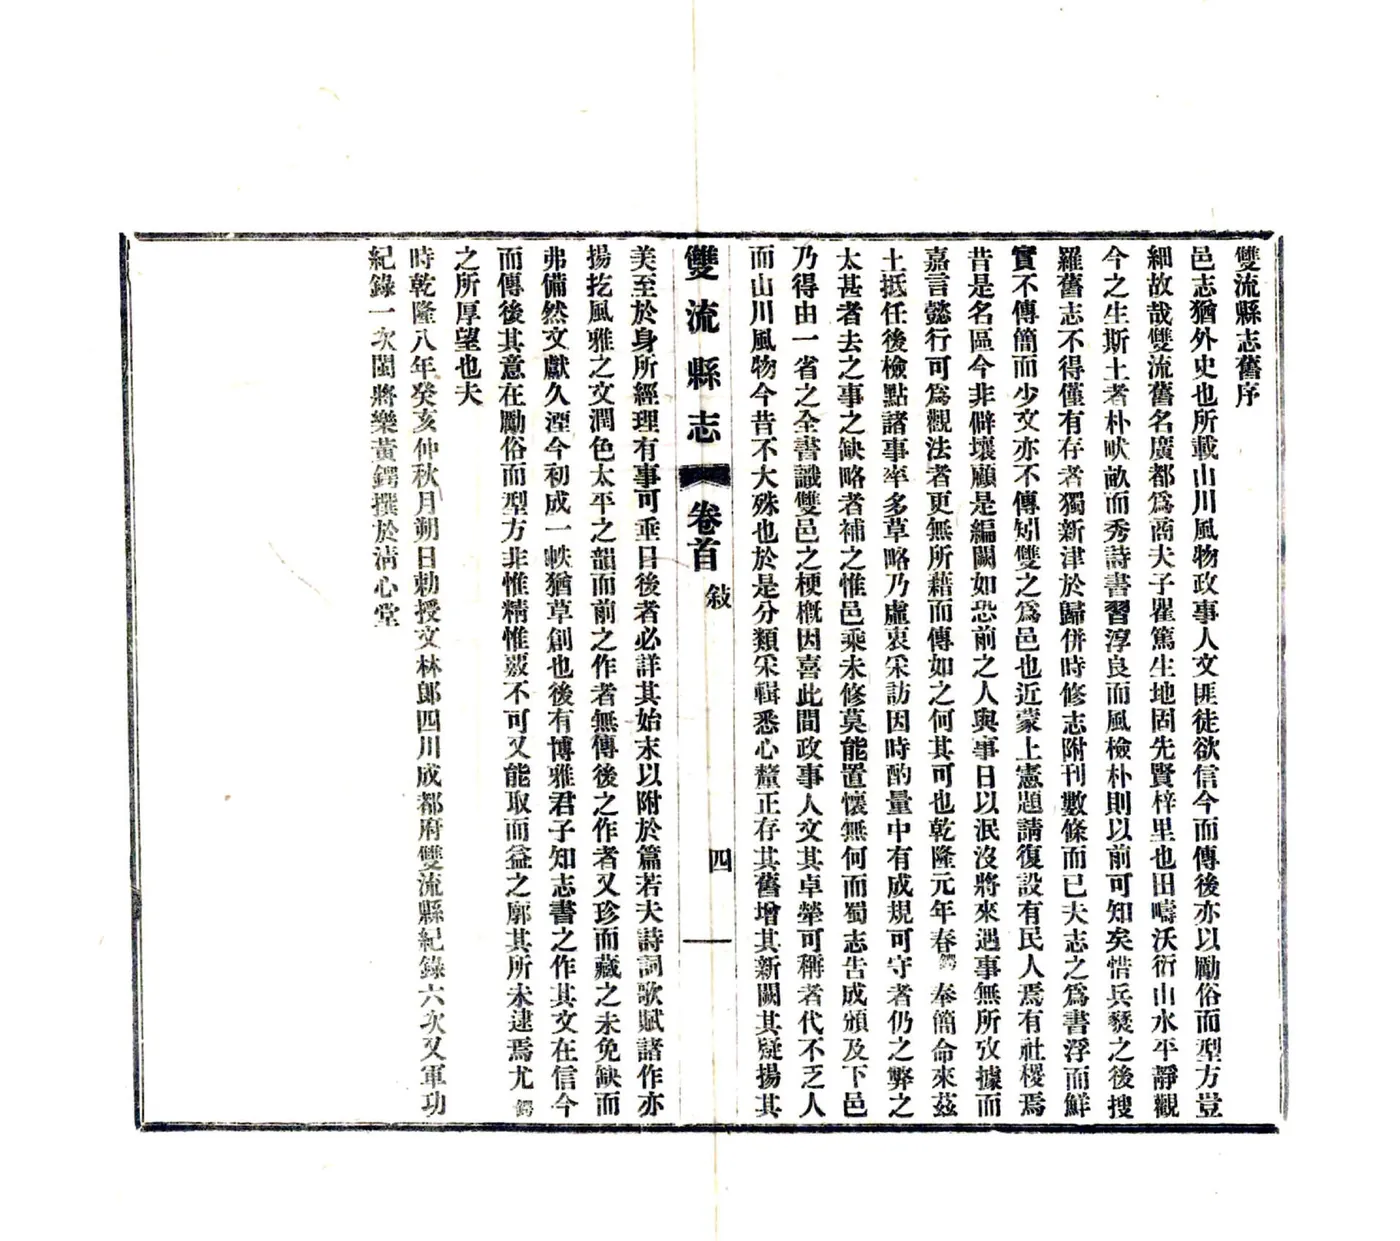 雙流縣志舊序
邑志猶外史也所載山川風物政事人文匪徒欲信今而傳後亦以勵俗而型方豈
細故哉雙流舊名廣都爲商大夫子瞿篤生地固先賢梓里也田疇沃衍山水平靜觀
今之生斯土者朴畎畝而秀詩書習淳良而風檢朴則以前可知矣惜兵燹之後搜
羅舊志不得僅有存者獨新津於歸併時修志附刊數條而已夫志之爲書浮而鮮
實不傳簡而少文亦不傳矧雙之爲邑也近蒙上憲題請復設有民人焉有社稷焉
昔是名區今非僻壤顧是編闕如恐前之人與事日以泯沒將來遇事無所攷據而
嘉言懿行可爲觀法者更無所藉而傳如之何其可也乾隆元年春鍔奉簡命來茲
土抵任後檢點諸事率多草略乃虛衷采訪因時酌量中有成規可守者仍之弊之
太甚者去之事之缺略者補之惟邑乘未修莫能置懷無何而蜀志告成頒及下邑
乃得由一省之全書識雙邑之梗概因喜此間政事人文其卓犖可稱者代不乏人
而山川風物今昔不大殊也於是分類采輯悉心釐正存其舊增其新闕其疑揚其
雙流縣志 卷首 敍 四
美至於身所經理有事可垂日後者必詳其始末以附於篇若夫詩詞歌賦諸作亦
揚扢風雅之文潤色太平之韻而前之作者無傳後之作者又珍而藏之未免缺而
弗備然文獻久湮今初成一帙猶草創也後有博雅君子知志書之作其文在信今
而傳後其意在勵俗而型方非惟精惟覈不可又能取而益之廓其所未逮焉尤鍔
之所厚望也夫
時乾隆八年癸亥仲秋月朔日勅授文林郎四川成都府雙流縣紀錄六次又軍功
紀錄一次閩將樂黃鍔撰於淸心堂